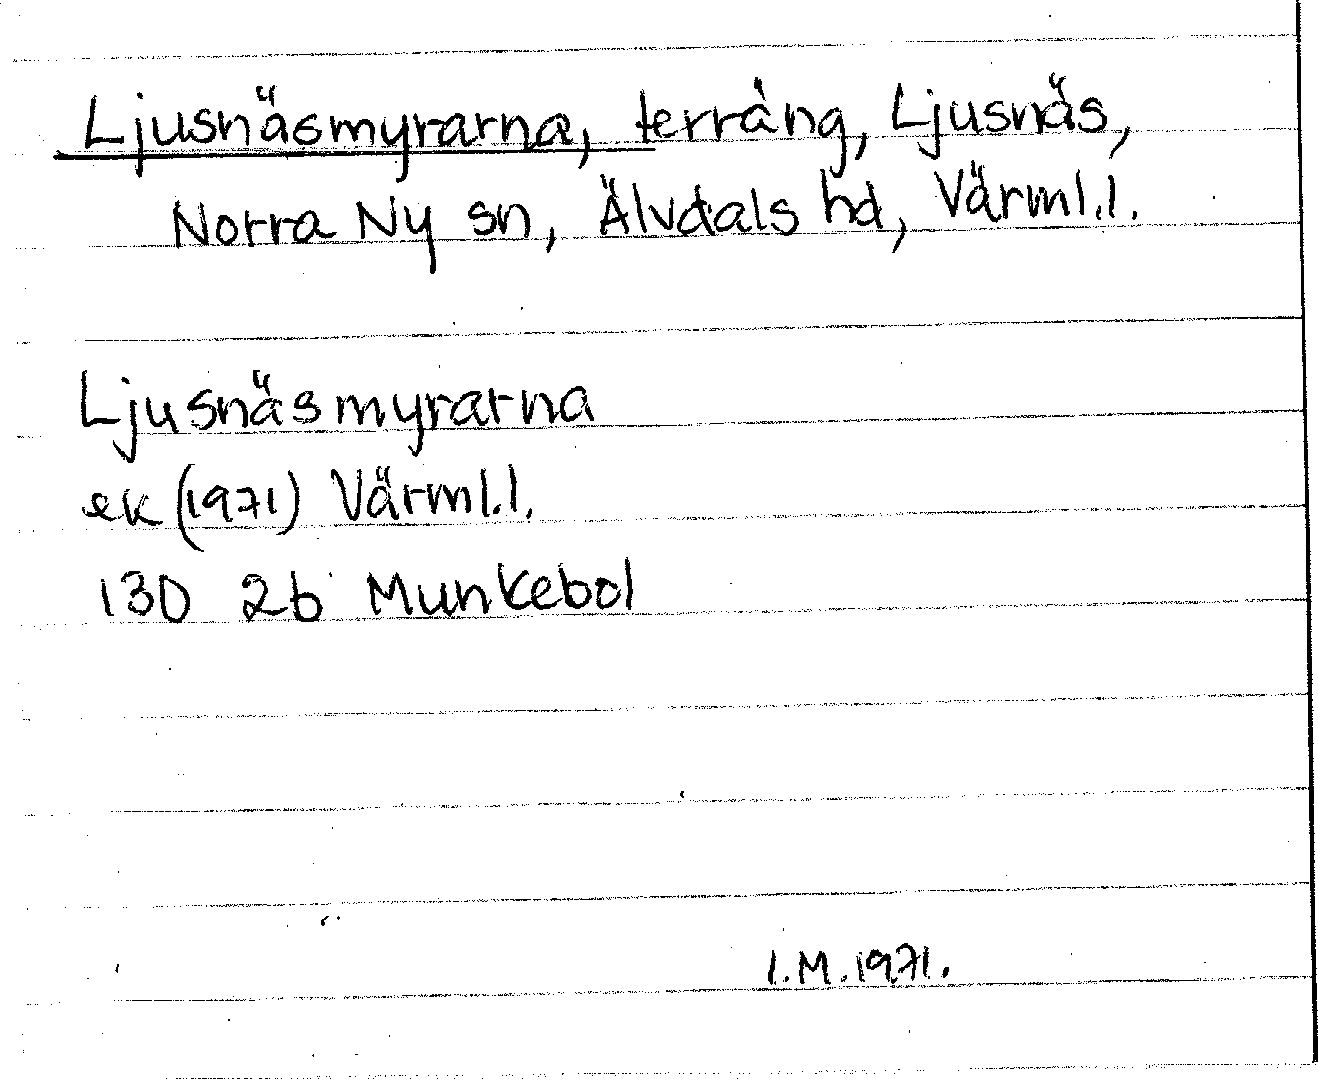 Ljusnäsmyrarna, terräng, Ljusnäs,
Norra Ny sn, Älvdals hd, Värml.l.
Ljusnäsmyrarna
ek (1971) Värml.l.
13D 2b Munkebol
I.M.1971.